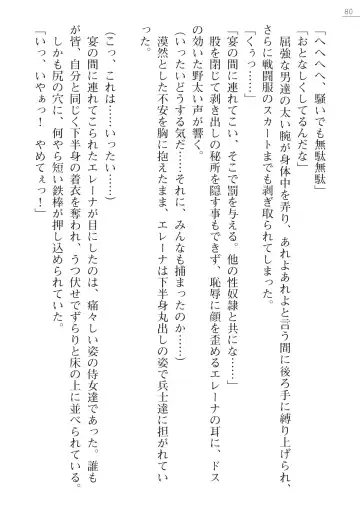 80
「へへへへ、騒いでも無駄無駄」
「おとなしくしてるんだな」
屈強な男達の太い腕が身体中を弄り、あれよあれよと言う間に後ろ手に縛り上げられ、
さらに戦闘服のスカートまでも剥ぎ取られてしまった。
「くぅっ……」
「宴の間に連れてこい、そこで罰を与える。他の性奴隷と共にな……」
股を閉じて剥き出しの秘所を隠す事もできず、恥辱に顔を歪めるエレーナの耳に、ドス
の効いた野太い声が響く。
(いったいどうする気だ……それに、みんなも捕まったのか……)
漠然とした不安を胸に抱えたまま、エレーナは下半身丸出しの姿で兵士達に担がれてい
った。
(こっ、これは……いったい……)
宴の間に連れてこられたエレーナが目にしたのは、痛々しい姿の侍女達であった。誰も
が皆、自分と同じく下半身の着衣を奪われ、うつ伏せでずらりと床の上に並べられている。
しかも尻の穴に、何やら短い鉄棒が押し込められていた。
「いっ、いやぁっ！　やめてぇっ！」